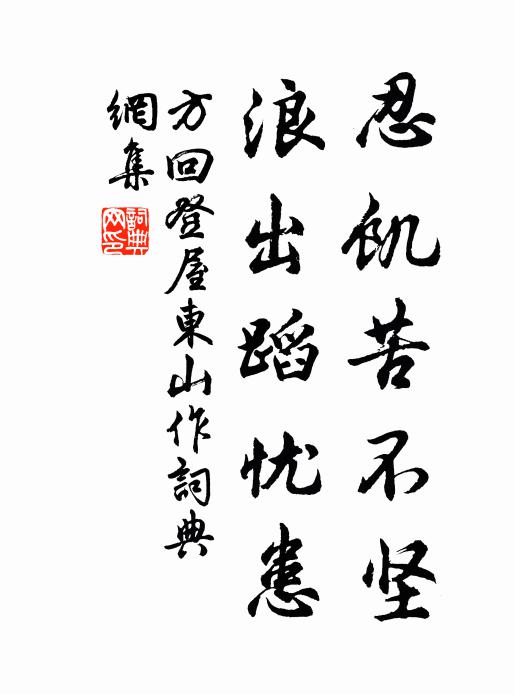 忍飢苦不坚
浪出蹈忧患
方回登屋東山作詞典
網集
詞典
网印